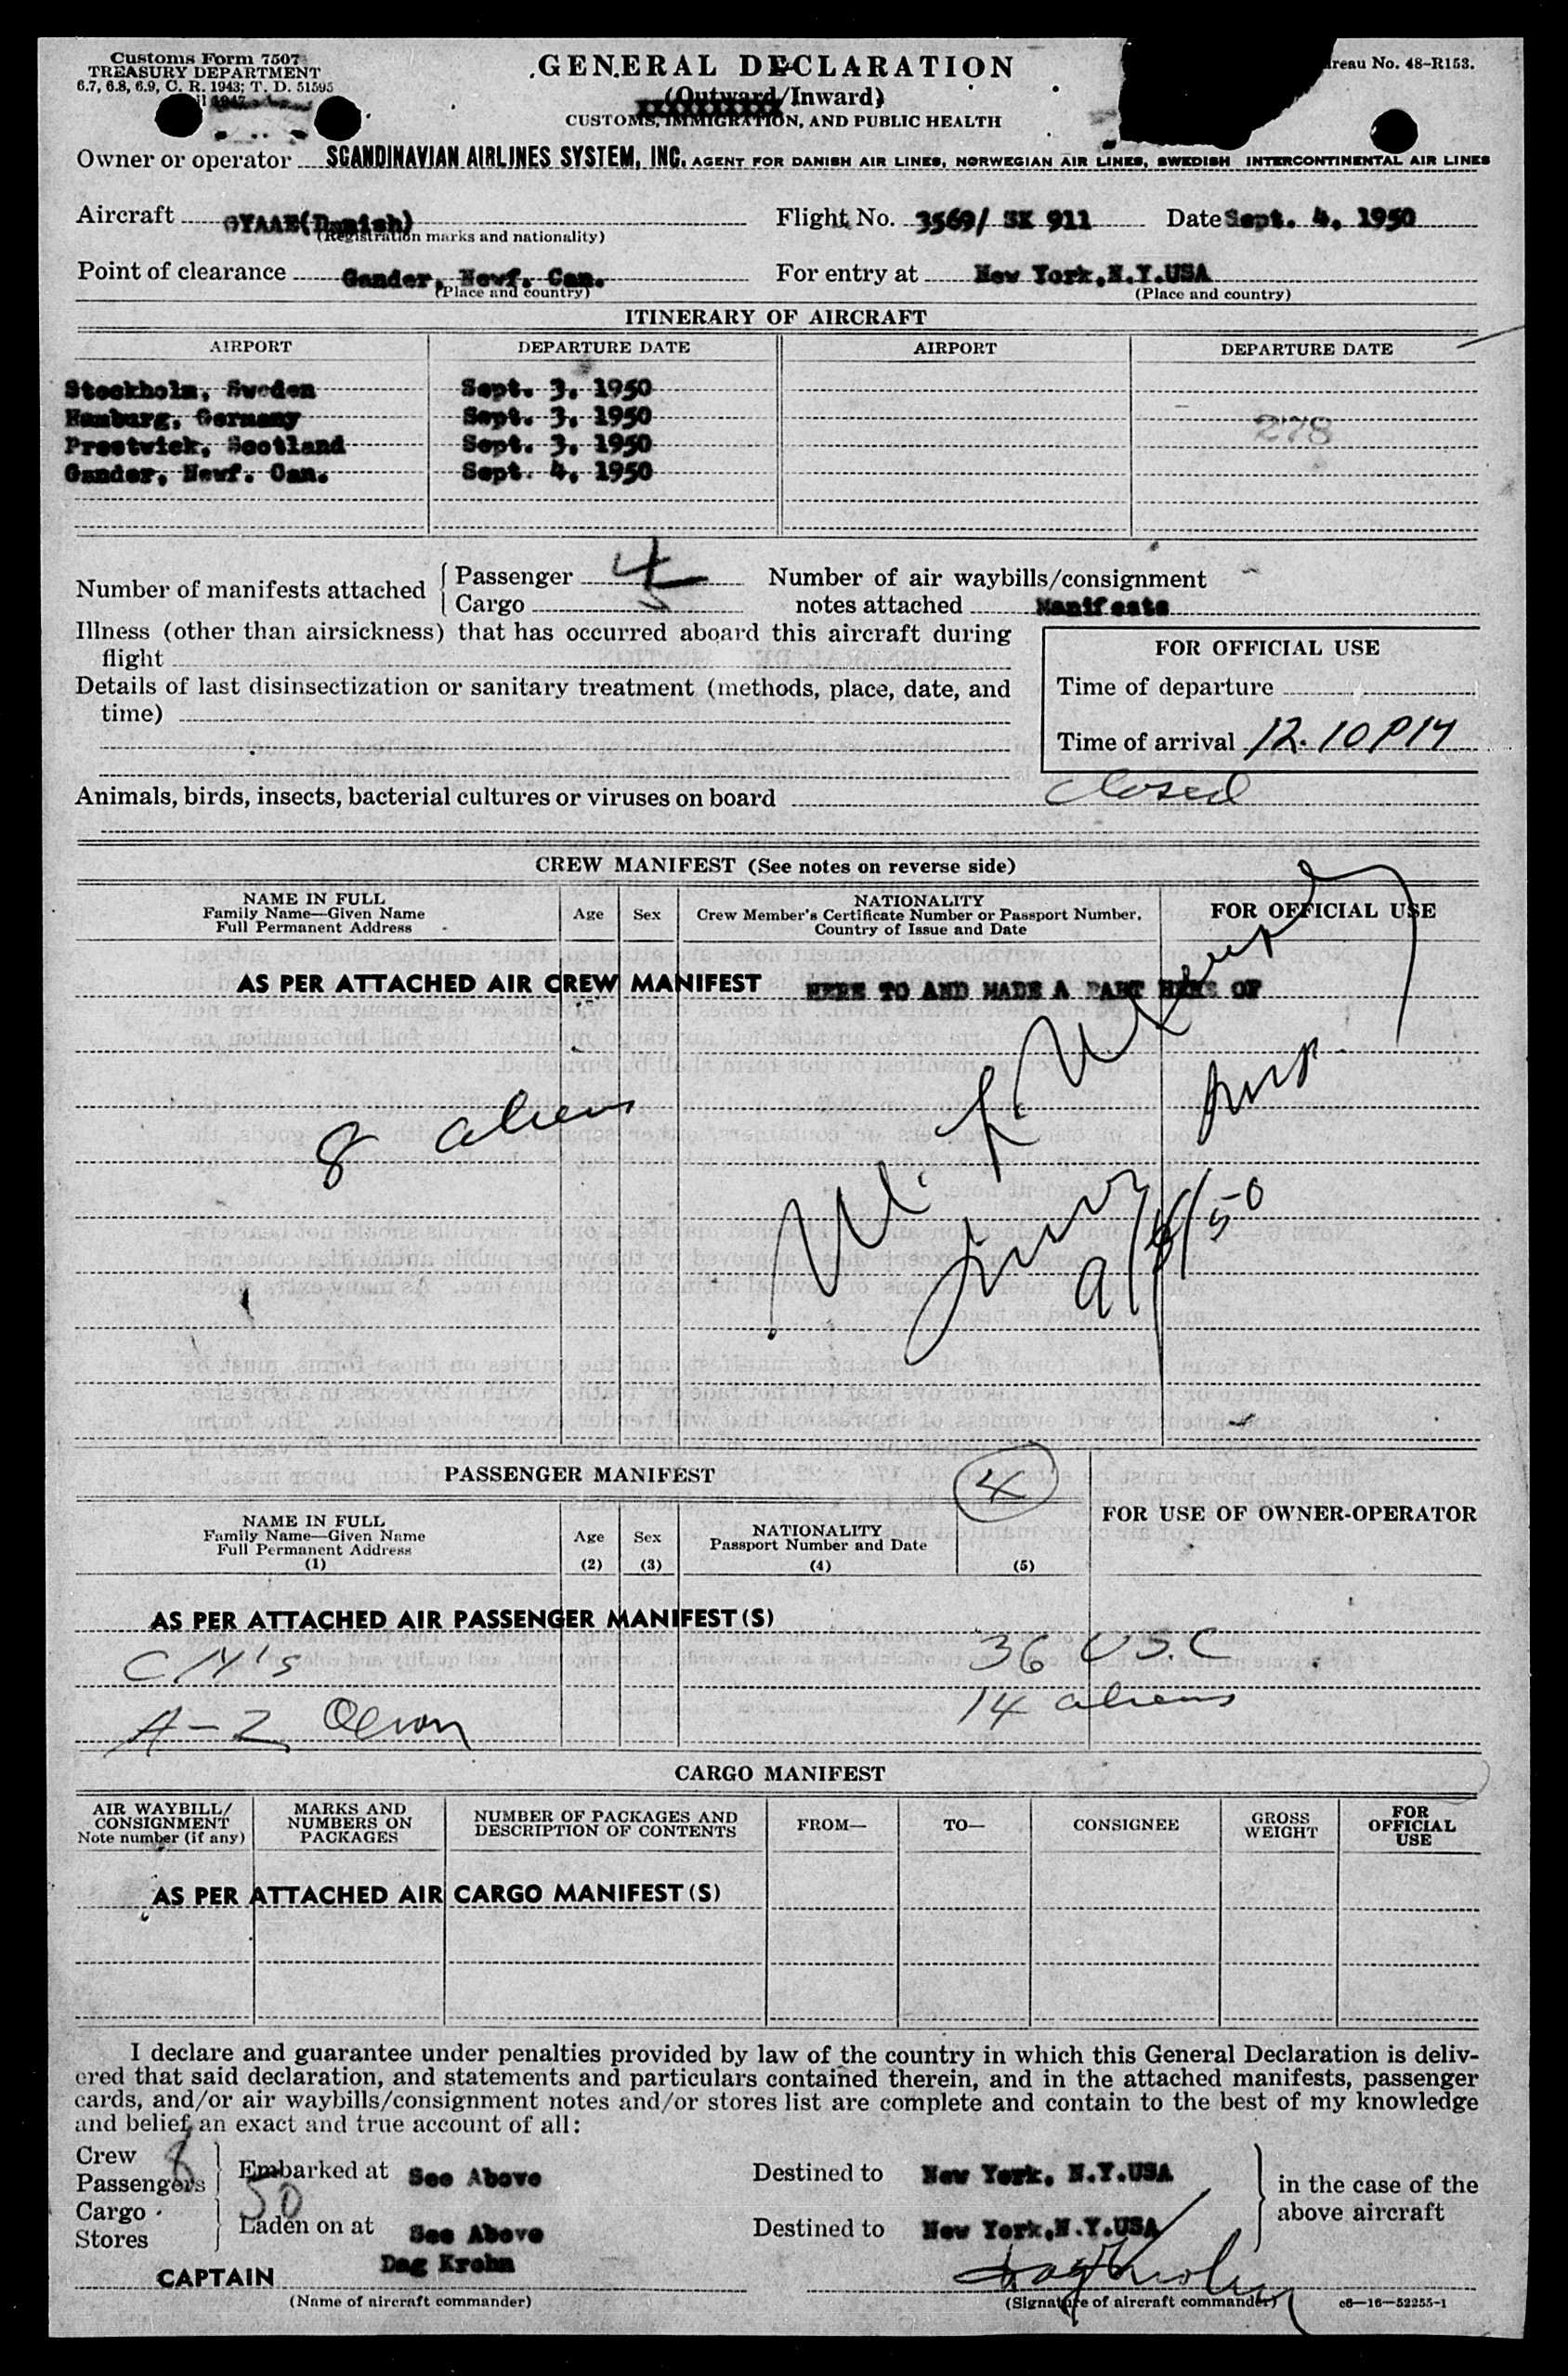 Customs Form 7507
TREASURY DEPARTMENT
6.7, 6.8, 6.9, C. R. 1943; T. D. 51595
GENERAL DECLARATION
(Outward/Inward)
CUSTOMS, IMMIGRATION, AND PUBLIC HEALTH
reau No. 48-R153.
Owner or operator SCANDINAVIAN AIRLINES SYSTEM, INC. AGENT FOR DANISH AIR LINES, NORWEGIAN AIR LINES, SWEDISH INTERCONTINENTAL AIR LINES
Aircraft OYAAE(Danish) Flight No. 3569/ SK 911 Date Sept. 4, 1950
(Registration marks and nationality)
Point of clearance Gander, Newf. Can. For entry at New York,N.Y.USA
(Place and country) (Place and country)
ITINERARY OF AIRCRAFT
AIRPORT DEPARTURE DATE AIRPORT DEPARTURE DATE
Stockholm, Sweden Sept. 3, 1950
Hamburg, Germany Sept. 3, 1950 278
Prestwick, Scotland Sept. 3, 1950
Gander, Newf. Can. Sept. 4, 1950
Number of manifests attached Passenger 4 Number of air waybills/consignment
Cargo notes attached Manifests
Illness (other than airsickness) that has occurred aboard this aircraft during
flight
FOR OFFICIAL USE
Details of last disinsectization or sanitary treatment (methods, place, date, and
time)
Time of departure
Time of arrival 12.10 PM
Animals, birds, insects, bacterial cultures or viruses on board closed
CREW MANIFEST (See notes on reverse side)
NAME IN FULL
Family Name—Given Name
Full Permanent Address
Age Sex
NATIONALITY
Crew Member's Certificate Number or Passport Number,
Country of Issue and Date
FOR OFFICIAL USE
AS PER ATTACHED AIR CREW MANIFEST HERE TO AND MADE A PART HERE OF
8 aliens
9/4/50
PASSENGER MANIFEST 4
FOR USE OF OWNER-OPERATOR
NAME IN FULL
Family Name—Given Name
Full Permanent Address
(1)
Age
(2)
Sex
(3)
NATIONALITY
Passport Number and Date
(4)
(5)
AS PER ATTACHED AIR PASSENGER MANIFEST(S)
CM's 36 U.S.C
A-2 14 aliens
CARGO MANIFEST
AIR WAYBILL/
CONSIGNMENT
Note number (if any)
MARKS AND
NUMBERS ON
PACKAGES
NUMBER OF PACKAGES AND
DESCRIPTION OF CONTENTS
FROM— TO— CONSIGNEE
GROSS
WEIGHT
FOR
OFFICIAL
USE
AS PER ATTACHED AIR CARGO MANIFEST(S)
I declare and guarantee under penalties provided by law of the country in which this General Declaration is deliv-
ered that said declaration, and statements and particulars contained therein, and in the attached manifests, passenger
cards, and/or air waybills/consignment notes and/or stores list are complete and contain to the best of my knowledge
and belief, an exact and true account of all:
Crew 8
Passengers 50 Embarked at See Above Destined to New York, N.Y.USA
in the case of the
above aircraft
Cargo
Stores Laden on at See Above Destined to New York,N.Y.USA
CAPTAIN Dag Krohn Dag Krohn
(Name of aircraft commander) (Signature of aircraft commander) c6—16—52255-1